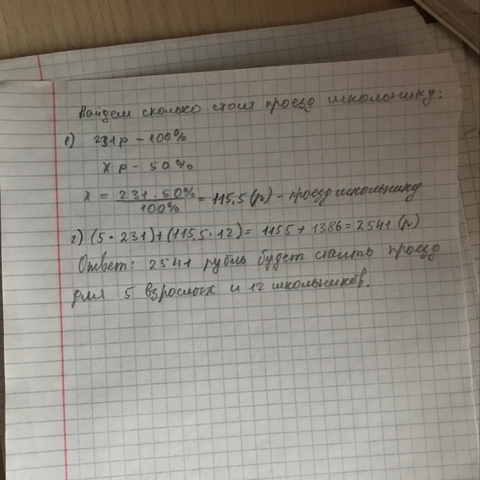 Найдем сколько стоит проезд школьнику:
1) 231 р - 100%
х р - 50%
х = 231 · 50% / 100% = 115,5 (р) - проезд школьнику
2) (5 · 231) + (115,5 · 12) = 1155 + 1386 = 2541 (р)
Ответ: 2541 рубль будет стоить проезд
для 5 взрослых и 12 школьников.